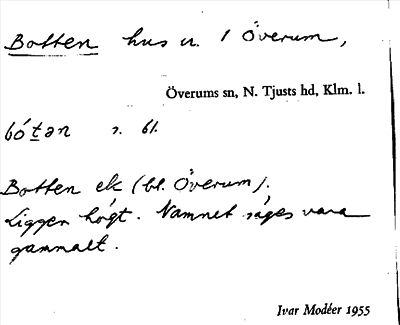 Botten hus u. / Överum,
Överums sn, N. Tjusts hd, Klm. l.
bótən s. 61.
Botten ek (bl. Överum).
Ligger högt. Namnet säges vara
gammalt.
Ivar Modéer 1955